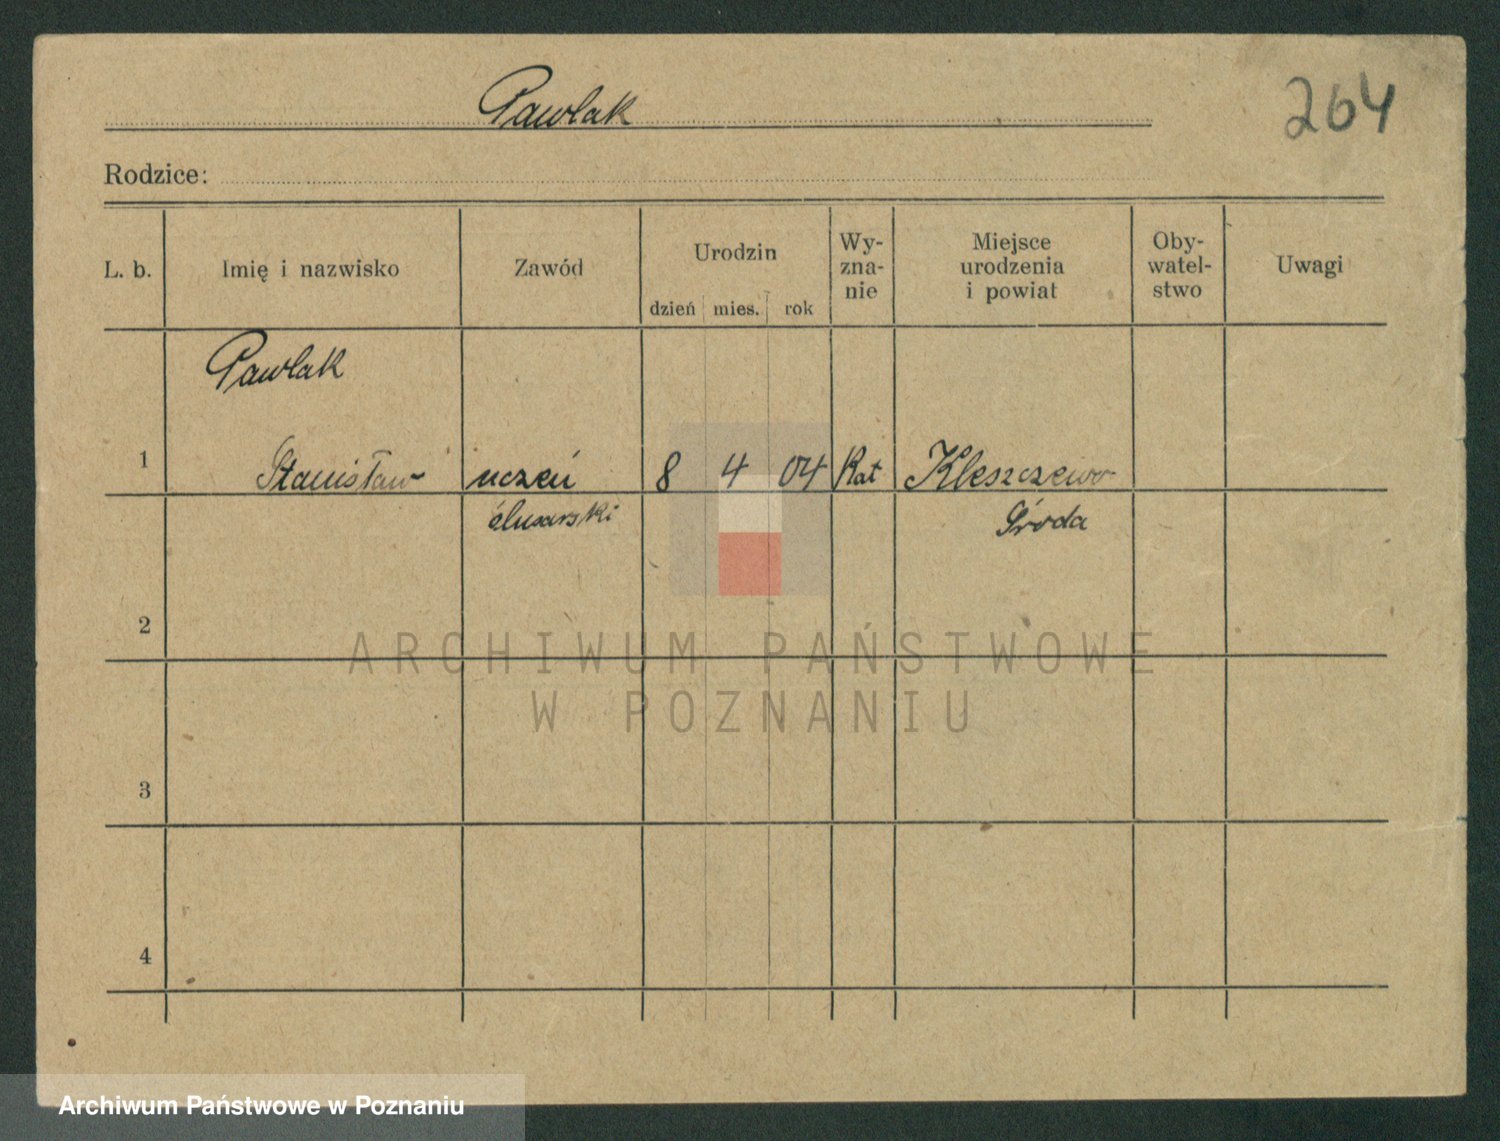 Pawlak
264
Rodzice:
L. b.
Imię i nazwisko
Zawód
Urodzin
dzień mies. rok
Wy-
zna-
nie
Miejsce
urodzenia
i powiat
Oby-
watel-
stwo
Uwagi
Pawlak
1 Stanisław uczeń 8 4 04 Kat Kleszczewo
ślusarski Środa
2
3
4
ARCHIWUM PAŃSTWOWE
W POZNANIU
Archiwum Państwowe w Poznaniu